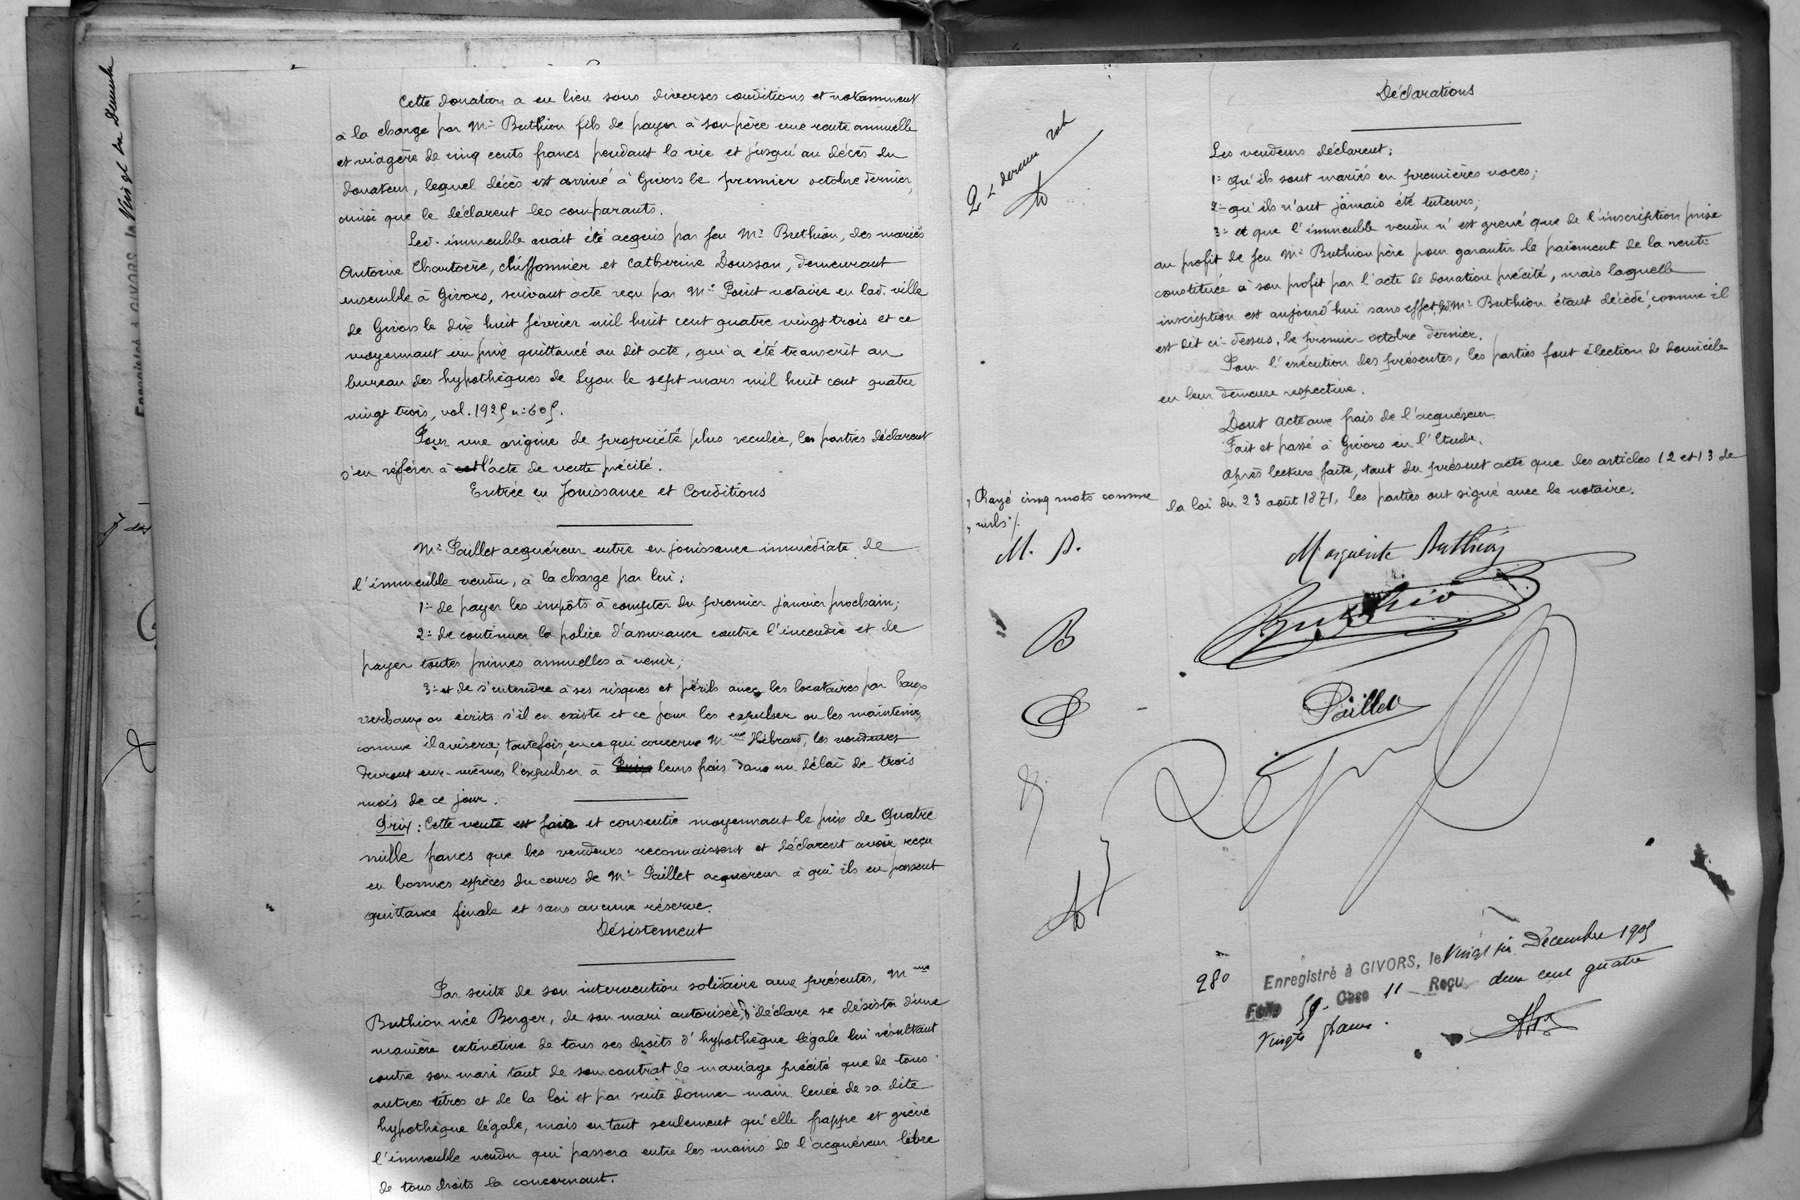 Cette donation a eu lieu sous diverses conditions et notamment
à la charge par Mr Buthion fils de payer à son père une rente annuelle
et viagère de cinq cents francs pendant la vie et jusqu'au décès du
donateur, lequel décès est arrivé à Givors le premier octobre dernier,
ainsi que le déclarent les comparants.
Led. immeuble avait été acquis par feu Mr Buthion, des mariés
Antoine Chartoire, chiffonnier et Catherine Dousson, demeurant
ensemble à Givors, suivant acte reçu par Me Point notaire en lad. ville
de Givors le dix huit février mil huit cent quatre vingt trois et ce
moyennant un prix quittancé au dit acte, qui a été transcrit au
bureau des hypothèques de Lyon le sept mars mil huit cent quatre
vingt trois, vol. 1925 n° 605.
Pour une origine de propriété plus reculée, les parties déclarent
s'en référer à l'acte de vente précité.
Entrée en Jouissance et Conditions
Mr Paillet acquéreur entre en jouissance immédiate de
l'immeuble vendu, à la charge par lui:
1° de payer les impôts à compter du premier janvier prochain;
2° de continuer la police d'assurance contre l'incendie et de
payer toutes primes annuelles à venir;
3° et de s'entendre à ses risques et périls avec les locataires par baux
verbaux ou écrits s'il en existe et ce pour les expulser ou les maintenir,
comme il avisera; toutefois, en ce qui concerne Mme Hebrard, les vendeurs
devront eux-mêmes l'expulser à leurs frais dans un délai de trois
mois de ce jour.
Prix: Cette vente est faite et consentie moyennant le prix de Quatre
mille francs que les vendeurs reconnaissent et déclarent avoir reçu
en bonnes espèces du cours de Mr Paillet acquéreur à qui ils en passent
quittance finale et sans aucune réserve.
Désistement
Par suite de son intervention solidaire aux présentes, Mme
Buthion née Berger, de son mari autorisée, déclare se désister d'une
manière extinctive de tous ses droits d'hypothèque légale lui résultant
contre son mari tant de son contrat de mariage précité que de tous
autres titres et de la loi et par suite donner main levée de sa dite
hypothèque légale, mais en tant seulement qu'elle frappe et grève
l'immeuble vendu qui passera entre les mains de l'acquéreur libre
de tous droits la concernant.
Déclarations
Les vendeurs déclarent:
1° qu'ils sont mariés en premières noces;
2° qu'ils n'ont jamais été tuteurs;
3° et que l'immeuble vendu n'est grevé que de l'inscription prise
au profit de feu Mr Buthion père pour garantir le paiement de la rente
constituée à son profit par l'acte de donation précité, mais laquelle
inscription est aujourd'hui sans effet, Mr Buthion étant décédé, comme il
est dit ci-dessus, le premier octobre dernier.
Pour l'exécution des présentes, les parties font élection de domicile
en leur demeure respective.
Dont acte aux frais de l'acquéreur
Fait et passé à Givors en l'Etude,
Après lecture faite, tant du présent acte que des articles 12 et 13 de
la loi du 23 août 1871, les parties ont signé avec le notaire.
Rayé cinq mots comme
nuls
M. B.
B
P
Marguerite Buthion
Buthion
Paillet
280
Enregistré à GIVORS, le Vingt six Décembre 1905
Folio 59 Case 11 Reçu deux cent quatre
Vingts francs.